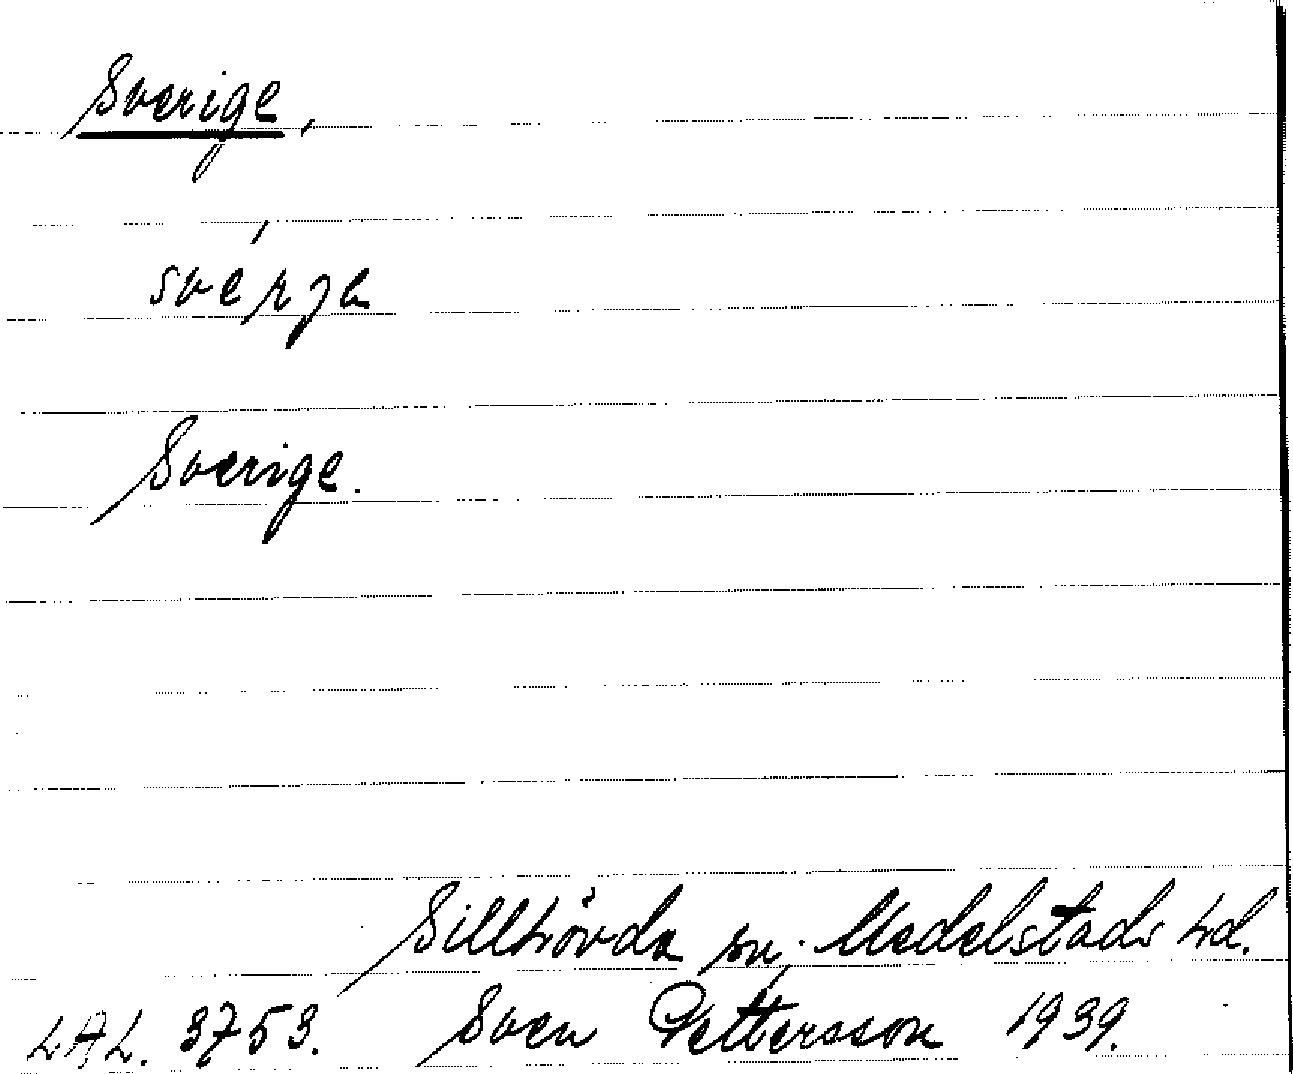 Sverige,
svérja
Sverige.
Sillhövda sn, Medelstads hd.
LAL. 3753. Sven Pettersson 1939.